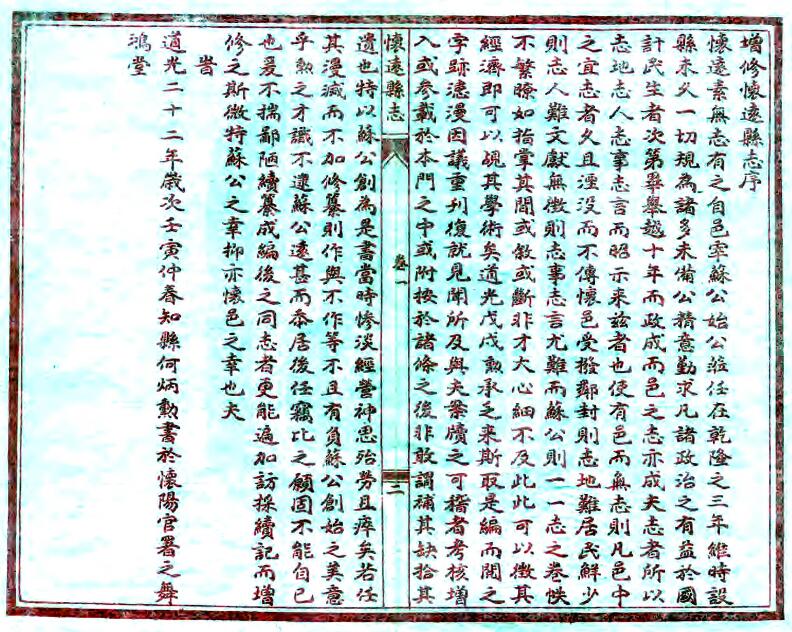 增修懷遠縣志序
懷遠素無志有之自邑宰蘇公始公蒞任在乾隆之三年維時設
縣未久一切規為諸多未備公精意勤求凡諸政治之有益於國
計民生者次第舉舉越十年而政成而邑之志亦成夫志者所以
志地志人志事志言而昭示來兹者也使有邑而無志則凡邑中
之宜志者久且湮沒而不傳懷邑受撥鄰封則志地難居民鮮少
則志人難文獻無徵則志事志言尤難而蘇公則一一志之卷帙
不繁瞭如指掌其間或敘或斷非才大心細不及此此可以徵其
經濟即可以覘其學術矣道光戊戌勲承乏來斯取是編而閱之
字跡漶漫因議重刊復就見聞所及與夫案牘之可稽者考核增
入或參載於本門之中或附按於諸條之後非敢謂補其缺拾其
懷遠縣志
卷一
三
遺也特以蘇公創為是書當時慘淡經營神思殆勞且瘁矣若任
其漫滅而不加修纂則作與不作等不且有負蘇公創始之美意
乎勲之才識不逮蘇公遠甚而忝居後任竊比之願固不能自已
也爰不揣鄙陋續纂成編後之同志者更能遍加訪採續記而增
修之斯微特蘇公之幸抑亦懷邑之幸也夫
旹
道光二十二年歲次壬寅仲春知縣何炳勲書於懷陽官署之舞
鴻堂